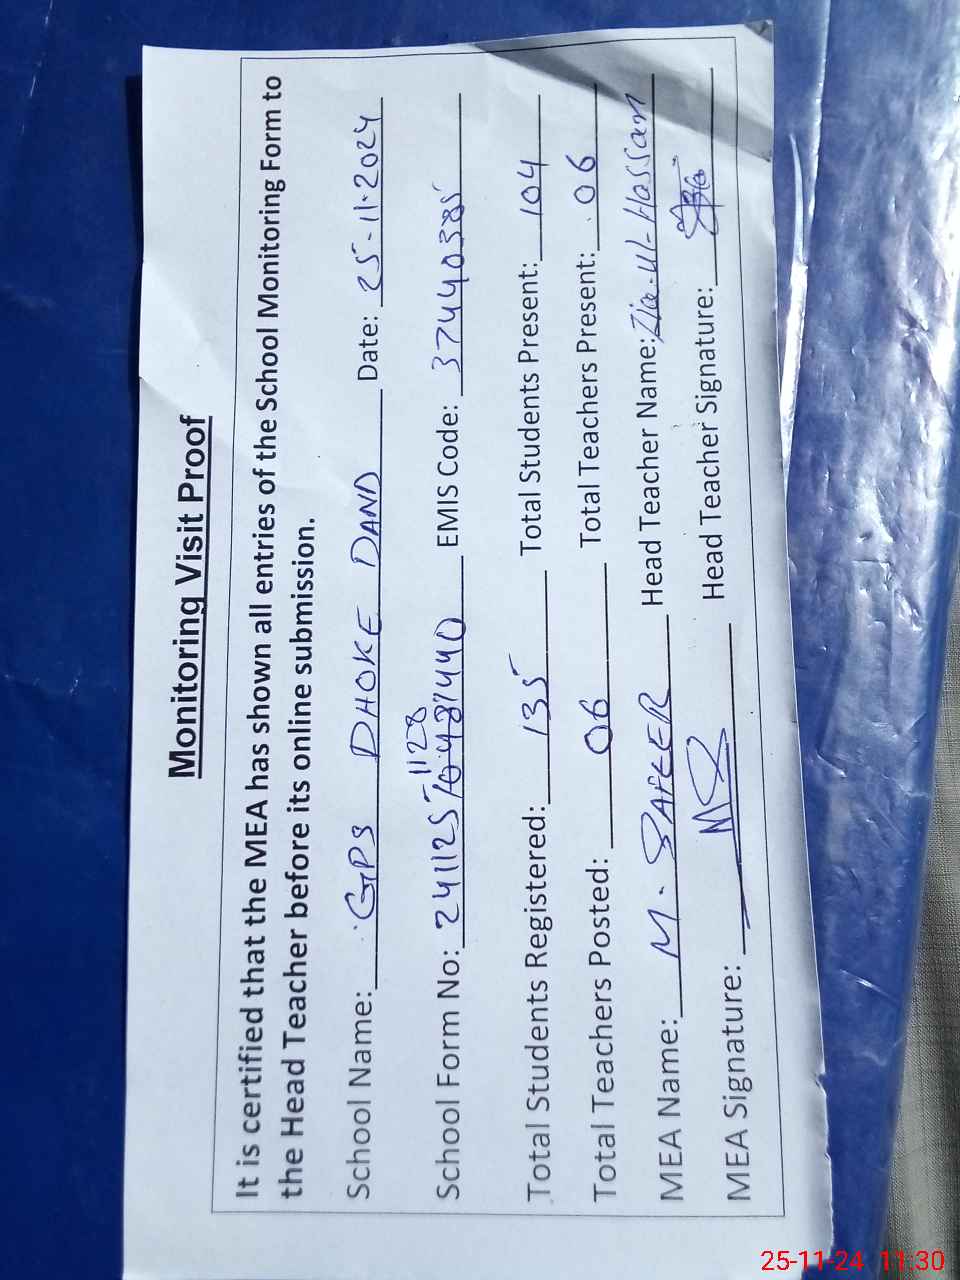 Monitoring Visit Proof
It is certified that the MEA has shown all entries of the School Monitoring Form to
the Head Teacher before its online submission.
School Name: GPS DHOKE DAND Date: 25-11-2024
1128
School Form No: 241125 37440 EMIS Code: 37440385
Total Students Registered: 135 Total Students Present: 104
Total Teachers Posted: 06 Total Teachers Present: 06
MEA Name: M. SAFEER Head Teacher Name: Zia-ul-Hassan
MEA Signature: Head Teacher Signature:
25-11-24 11:30